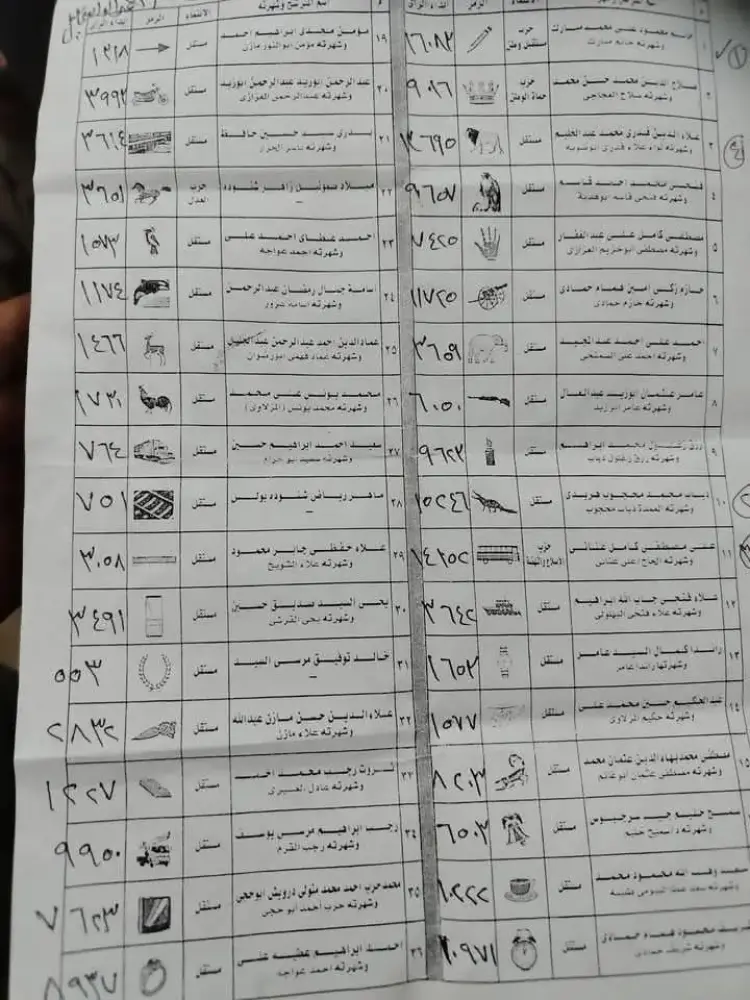 م اسم المرشح وشهرته الانتماء الرمز
١ قاسم محمود على محمد مبارك وشهرته حاتم مبارك حزب مستقبل وطن ١٦٠٨٢
٢ صلاح الدين محمد حسن محمد وشهرته صلاح العجاجى حزب حماة الوطن ٩٠١٦
٣ علاء الدين قدرى محمد عبدالحليم وشهرته لواء علاء قدرى مستقل ١٣٦٩٥
٤ فتحى محمد احمد قاسم وشهرته فتحى قاسم ابوهدية مستقل ٩٦٥٧
٥ مصطفى كامل على عبدالغفار وشهرته مصطفى ابوخزيم العزازى مستقل ٧٤٢٥
٦ حازم زكى امين همام حمادى وشهرته حازم حمادى مستقل ١١٧٢٥
٧ احمد على احمد عبدالمجيد وشهرته احمد على السمنجى مستقل ٣٦٥٩
٨ عامر عثمان ابوزيد عبدالعال وشهرته عامر ابوزيد مستقل ٦٠٥٠
٩ رزق زغلول محمد ابراهيم وشهرته رزق زغلول دياب مستقل ٩٦٢٢
١٠ دياب محمد محجوب فريدى وشهرته العمدة دياب محجوب مستقل ١٥٢٤٦
١١ على مصطفى كامل عنانى وشهرته الحاج على عنانى حزب الاصلاح والنهضة ١٤٢٥٢
١٢ علاء فتحى جاب الله ابراهيم وشهرته علاء فتحى البهلولى مستقل ٣٦٤٢
١٣ راندا كمال السيد عامر وشهرتها راندا عامر مستقل ١٦٥٢
١٤ عبدالحكيم حسن محمد على وشهرته حكيم المزلاوى مستقل ١٥٧٧
١٥ مصطفى محمد بهاء الدين عثمان محمد وشهرته مصطفى عثمان ابوغانم مستقل ٨٢٠٣
سميح حليم حبيب سرجيوس وشهرته د/سميح حليم مستقل ٦٥٠٣
سعد وهب الله محمود محمد مستقل ١٠٢٢٢
شريف محمود همام حمادى وشهرته شريف حمادى مستقل ٢٠٩٧١
اسم المرشح وشهرته الانتماء الرمز
١٩ مؤمن مجدى ابراهيم احمد وشهرته مؤمن ابوالنور مازن مستقل ١٢١٨
٢٠ عبدالرحمن ابوزيد عبدالرحمن ابوزيد وشهرته عبدالرحمن العزازى مستقل ٣٩٩٢
٢١ بدرى سيد حسين وشهرته ناصر الجزار مستقل ٣٦١٤
٢٢ ميلاد صموئيل زاهر شنوده – حزب العدل ٣٦٥١
٢٣ احمد عطاى احمد على وشهرته احمد عواجه مستقل ١٥٧٣
٢٤ اسامة جمال رمضان عبدالرحمن وشهرته اسامه مستقل ١١٧٤
٢٥ عماد الدين احمد عبدالرحمن عبدالجليل وشهرته عماد فهمى ابورضوان مستقل ١٤٦٦
٢٦ محمد يونس على محمد وشهرته محمد يونس (المزلاوى) مستقل ١٧٣١
٢٧ سعيد احمد ابراهيم حسين وشهرته سعيد ابو مستقل ٧٦٤
٢٨ ماهر رياض شنوده بولس – مستقل ٧٥١
٢٩ علاء حفظى جابر محمود وشهرته علاء الشويخ مستقل ٣٠٥٨
٣٠ يحى السيد صديق حسين وشهرته يحى القرشى مستقل ٣٤٩١
٣١ خالد توفيق مرسى السيد – مستقل ٥٥٣
٣٢ علاء الدين حسن مازن عبدالله وشهرته علاء مازن مستقل ٢٨٣٢
٣٣ ثروت رجب محمد احمد وشهرته عادل مستقل ١٢٢٧
٣٤ رجب ابراهيم مرسى يوسف وشهرته رجب القرم مستقل ٩٩٥٠
٣٥ محمد حرب احمد محمد متولى درويش ابوحجى وشهرته حرب احمد ابوحجى مستقل ٧٦٢٣
٣٦ احمد ابراهيم عطيه على وشهرته احمد عواجه مستقل ٨٩٣٧